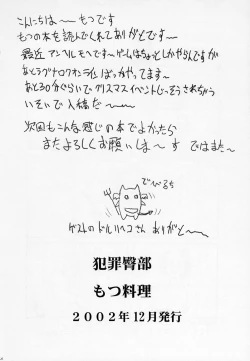 こんにちは～ もつです
もつの本を読んでくれてありがとです～
最近アンヘルモヘです～ゲームはちょとしかやらんですが
あとラグナロクオンラインばっかやってます～
あと30分ぐらいでクリスマスイベントじっそうされちゃう
いそいで入稿だ～～
次回もこんな感じの本でよかったら
またよろしくお願いしま～す ではまた～
でべるち
ゲストのドルリヘコさん ありがと～
犯罪臀部
もつ料理
2002年12月発行